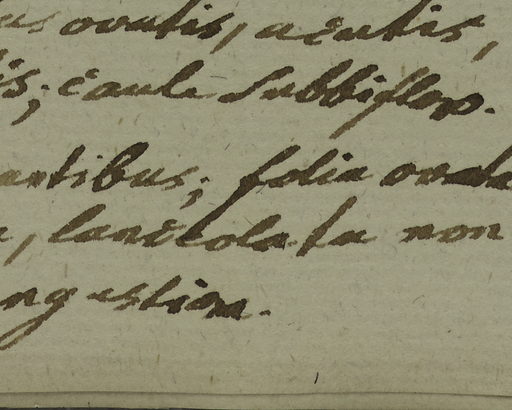 us ovatis, acutis,
is; caule subbifloro.
antibus; folia ovata
a, lanceolata non
angustiora.